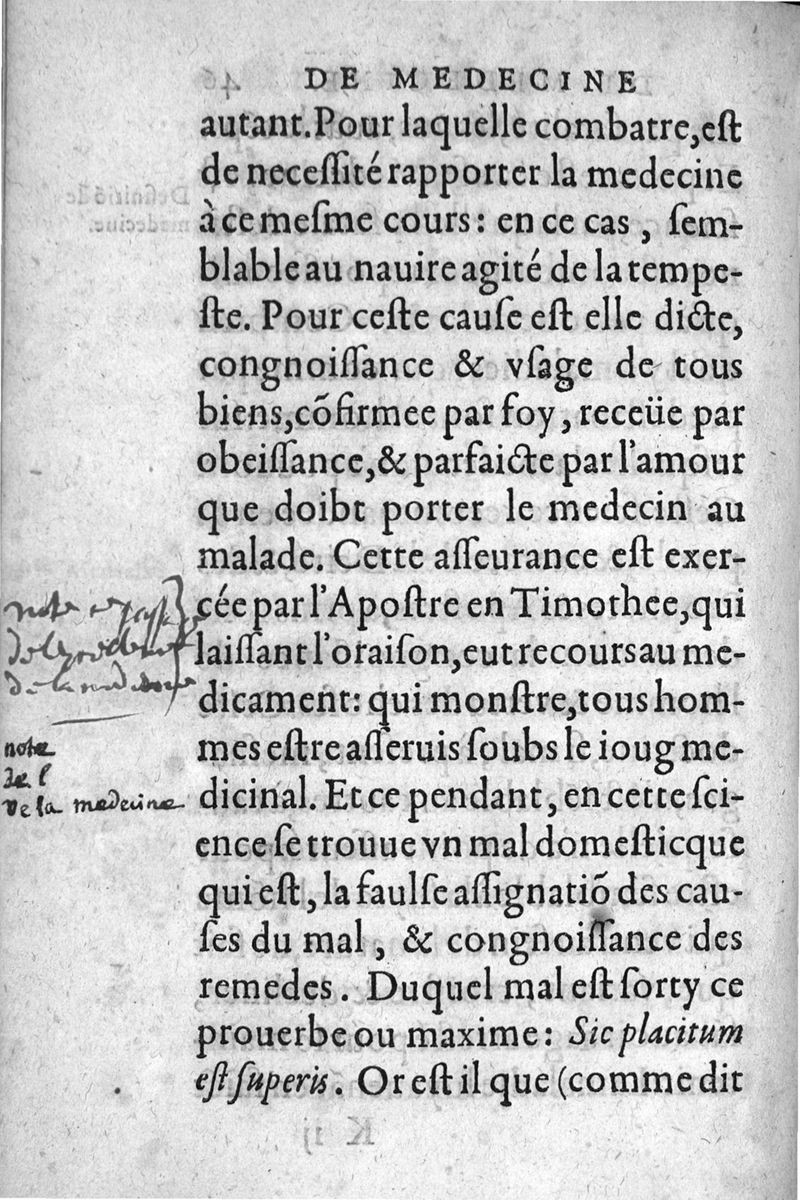 DE MEDECINE
autant. Pour laquelle combatre, eſt
de neceſſité rapporter la medecine
à ce meſme cours: en ce cas, ſem-
blable au nauire agité de la tempe-
ſte. Pour ceſte cauſe eſt elle dicte,
congnoiſſance & vſage de tous
biens, cõfirmee par foy, receüe par
obeiſſance, & parfaicte par l'amour
que doibt porter le medecin au
malade. Cette aſſeurance eſt exer-
cée par l'Apoſtre en Timothee, qui
laiſſant l'oraiſon, eut recours au me-
dicament: qui monſtre, tous hom-
mes eſtre aſſeruis ſoubs le ioug me-
dicinal. Et ce pendant, en cette ſci-
ence ſe trouue vn mal domeſticque
qui eſt, la faulſe aſſignatiõ des cau-
ſes du mal, & congnoiſſance des
remedes. Duquel mal eſt ſorty ce
prouerbe ou maxime: Sic placitum
eſt ſuperis. Or eſt il que (comme dit
note
de la medecine
note
de l
de la medecine